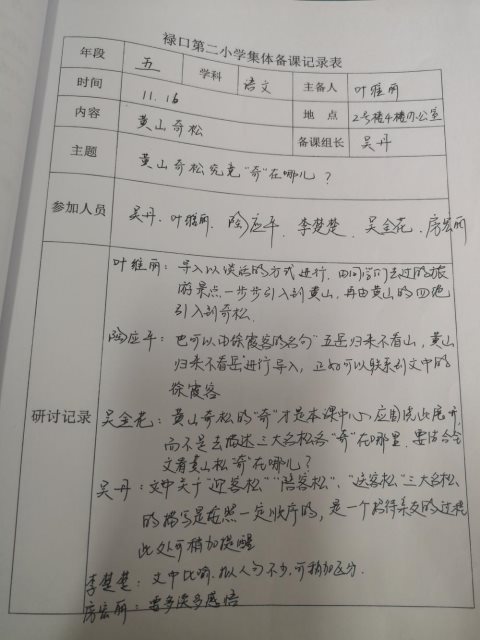 禄口第二小学集体备课记录表
年段 五 学科 语文 主备人 叶维丽
时间 11.16 地点 2号楼4楼办公室
内容 黄山奇松 备课组长 吴丹
主题 黄山奇松究竟“奇”在哪儿？
参加人员 吴丹、叶维丽、陶应平、李楚楚、吴全花、房宏丽
研讨记录
叶维丽：导入以谈话的方式进行，由同学们去过的旅
游景点一步步引入到黄山，再由黄山的四绝
引入到奇松.
陶应平：也可以由徐霞客的名句“五岳归来不看山，黄山
归来不看岳”进行导入，正好可以联系到文中的
徐霞客
吴全花：黄山奇松的“奇”才是本课中心，应围绕此展开，
而不是去描述三大名松各“奇”在哪里，要结合全
文看黄山松“奇”在哪儿？
吴丹：文中关于“迎客松”“陪客松”、“送客松”三大名松
的描写是按照一定顺序的，是一个招待亲友的过程
此处可稍加提醒
李楚楚：文中比喻、拟人句不少，可稍加区分.
房宏丽：要多读多感悟